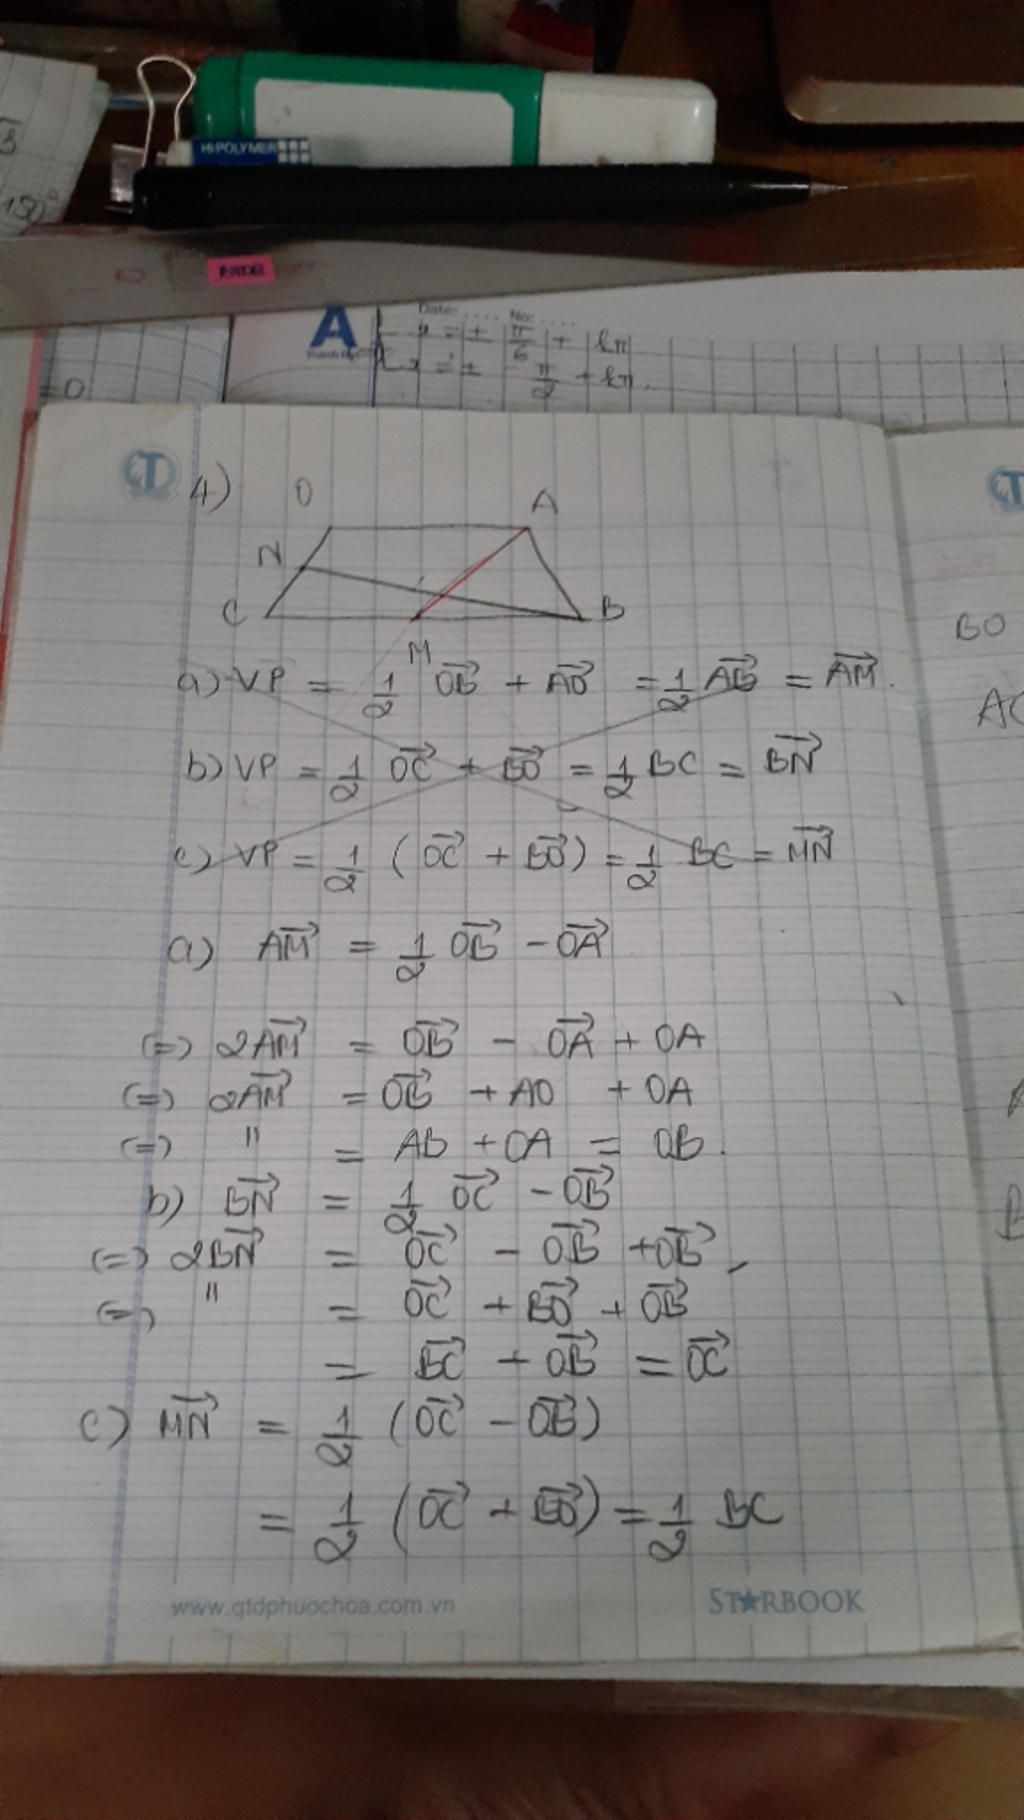 HI-POLYMER
150°
A
Date: .... No: ....
= ± π/6 + kπ
= ± π/2 + kπ
=0
4) O A
N
C B
M
BO
a) VP = 1/2 OB→ + AO→ = 1/2 AB→ = AM→.
b) VP = 1/2 OC→ + BO→ = 1/2 BC = BN→
c) VP = 1/2 (OC→ + BO→) = 1/2 BC = MN→
a) AM→ = 1/2 OB→ - OA→
(=) 2AM→ = OB→ - OA→ + OA
(=) 2AM→ = OB→ + AO + OA
(=) " = AB + OA = OB.
b) BN→ = 1/2 OC→ - OB→
(=) 2BN→ = OC→ - OB→ + OB→
(=) " = OC→ + BO→ + OB→
= BC→ + OB→ = OC→
c) MN→ = 1/2 (OC→ - OB→)
= 1/2 (OC→ + BO→) = 1/2 BC
www.qtdphuochoa.com.vn STARBOOK